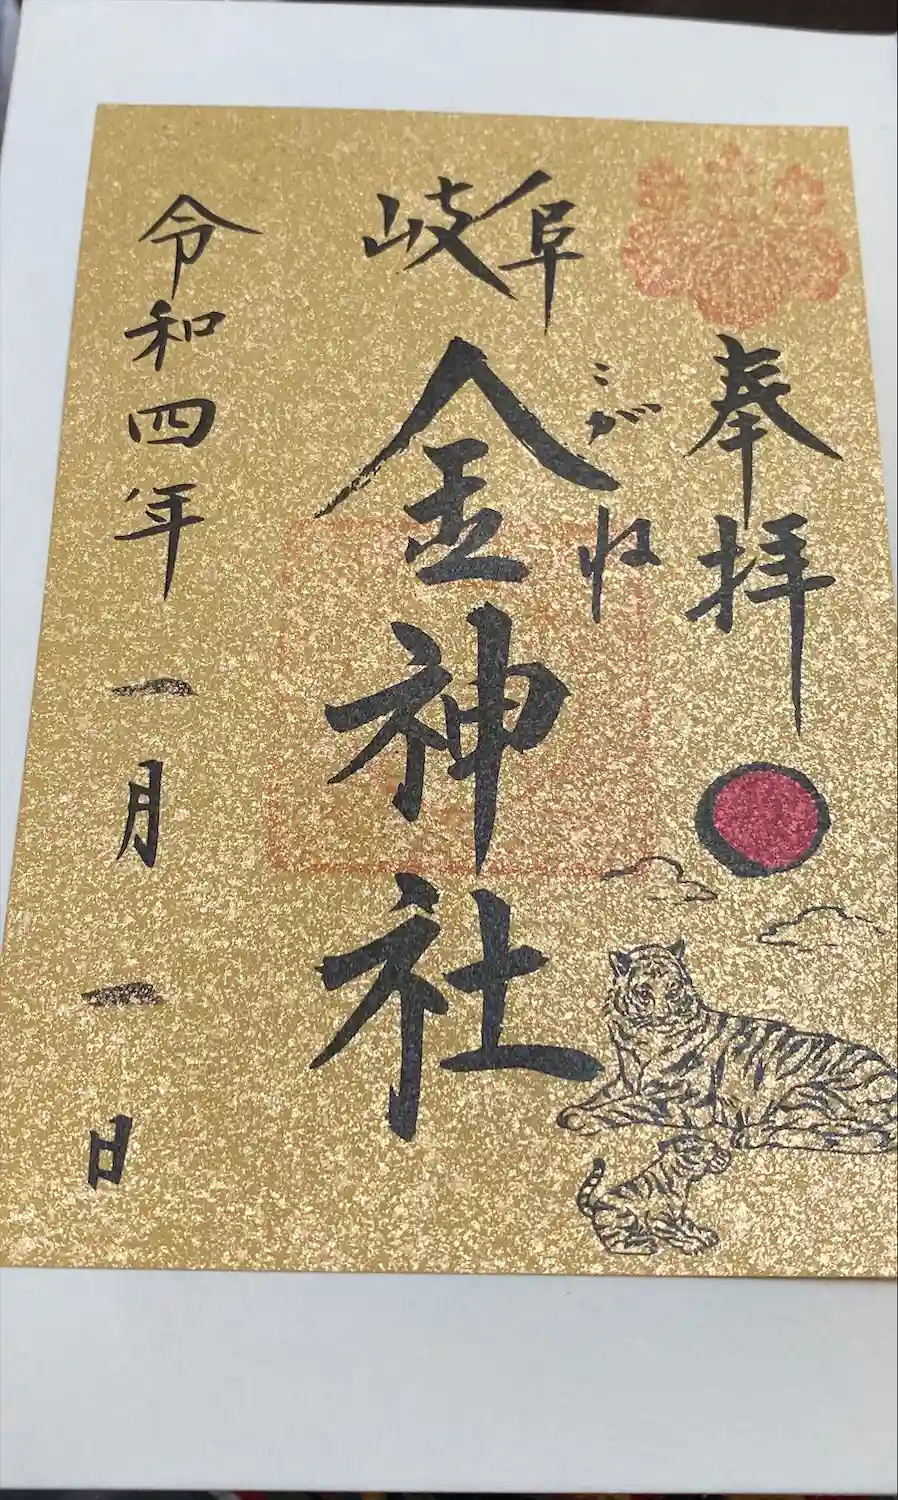 奉拝
こがね
岐阜
金神社
令和四年一月一日